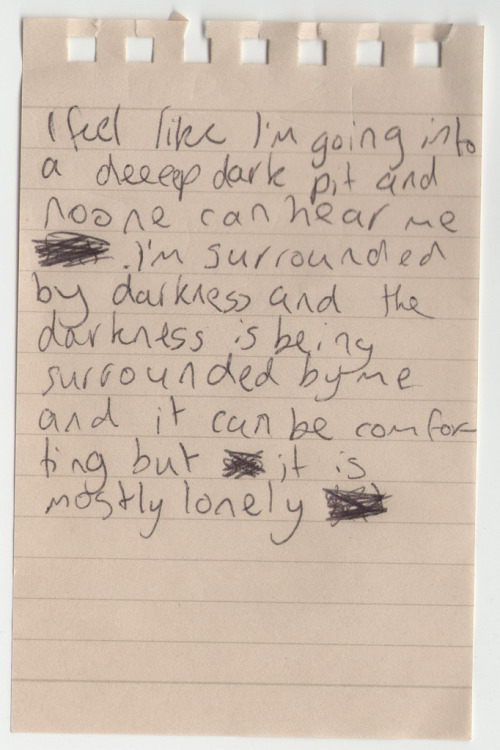 I feel like I'm going into
a deeeep dark pit and
noone can hear me
. I'm surrounded
by darkness and the
darkness is being
surrounded by me
and it can be comfor
ting but it is
mostly lonely